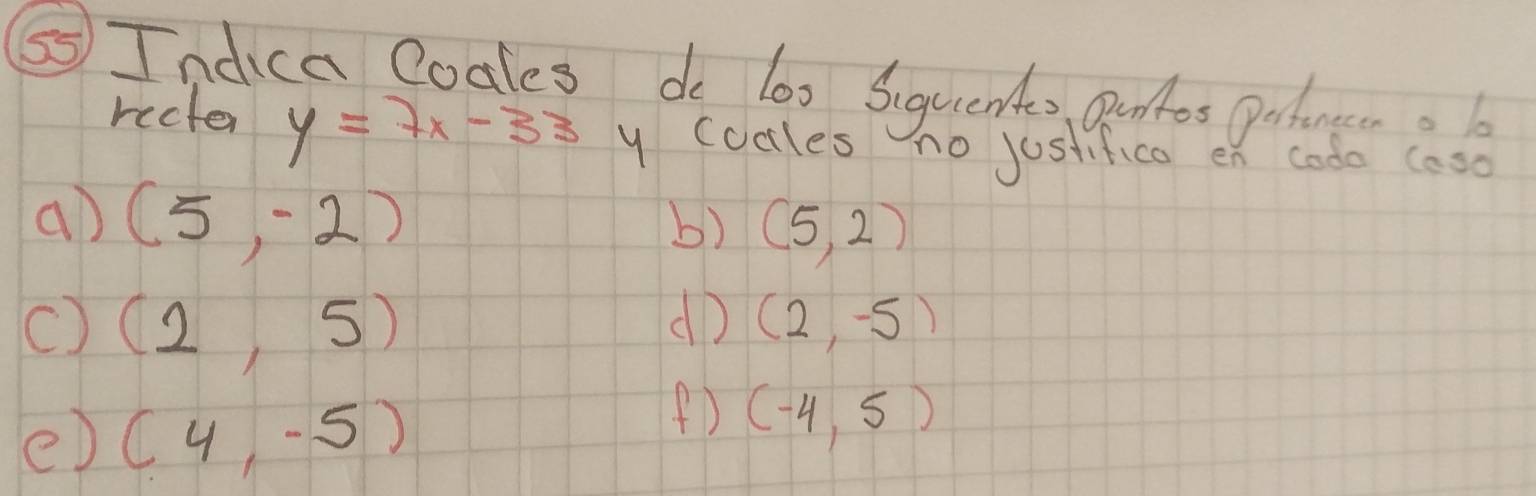 55 Indica Coales de los Siguientes puntos pertenecen a la
recta y = 7x - 33 y cuales no justifica en cada caso
a) (5, -2) b) (5, 2)
c) (2, 5) d) (2, -5)
e) (4, -5) f) (-4, 5)